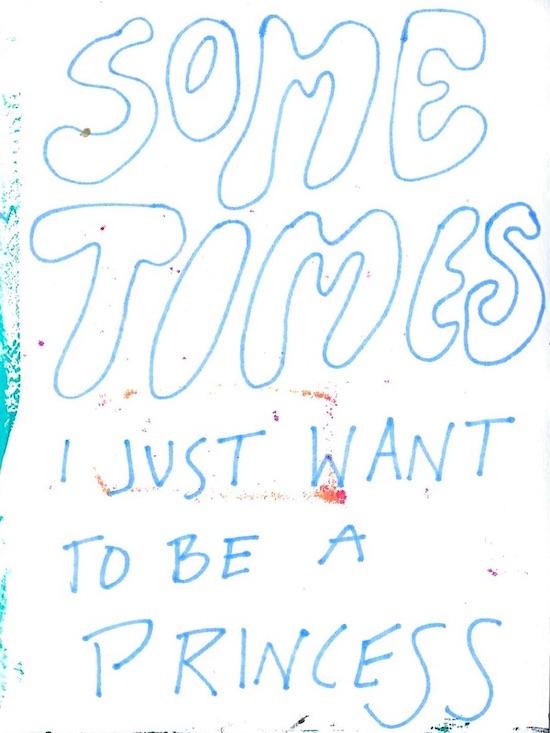 SOME
TIMES
I JUST WANT
TO BE A
PRINCESS